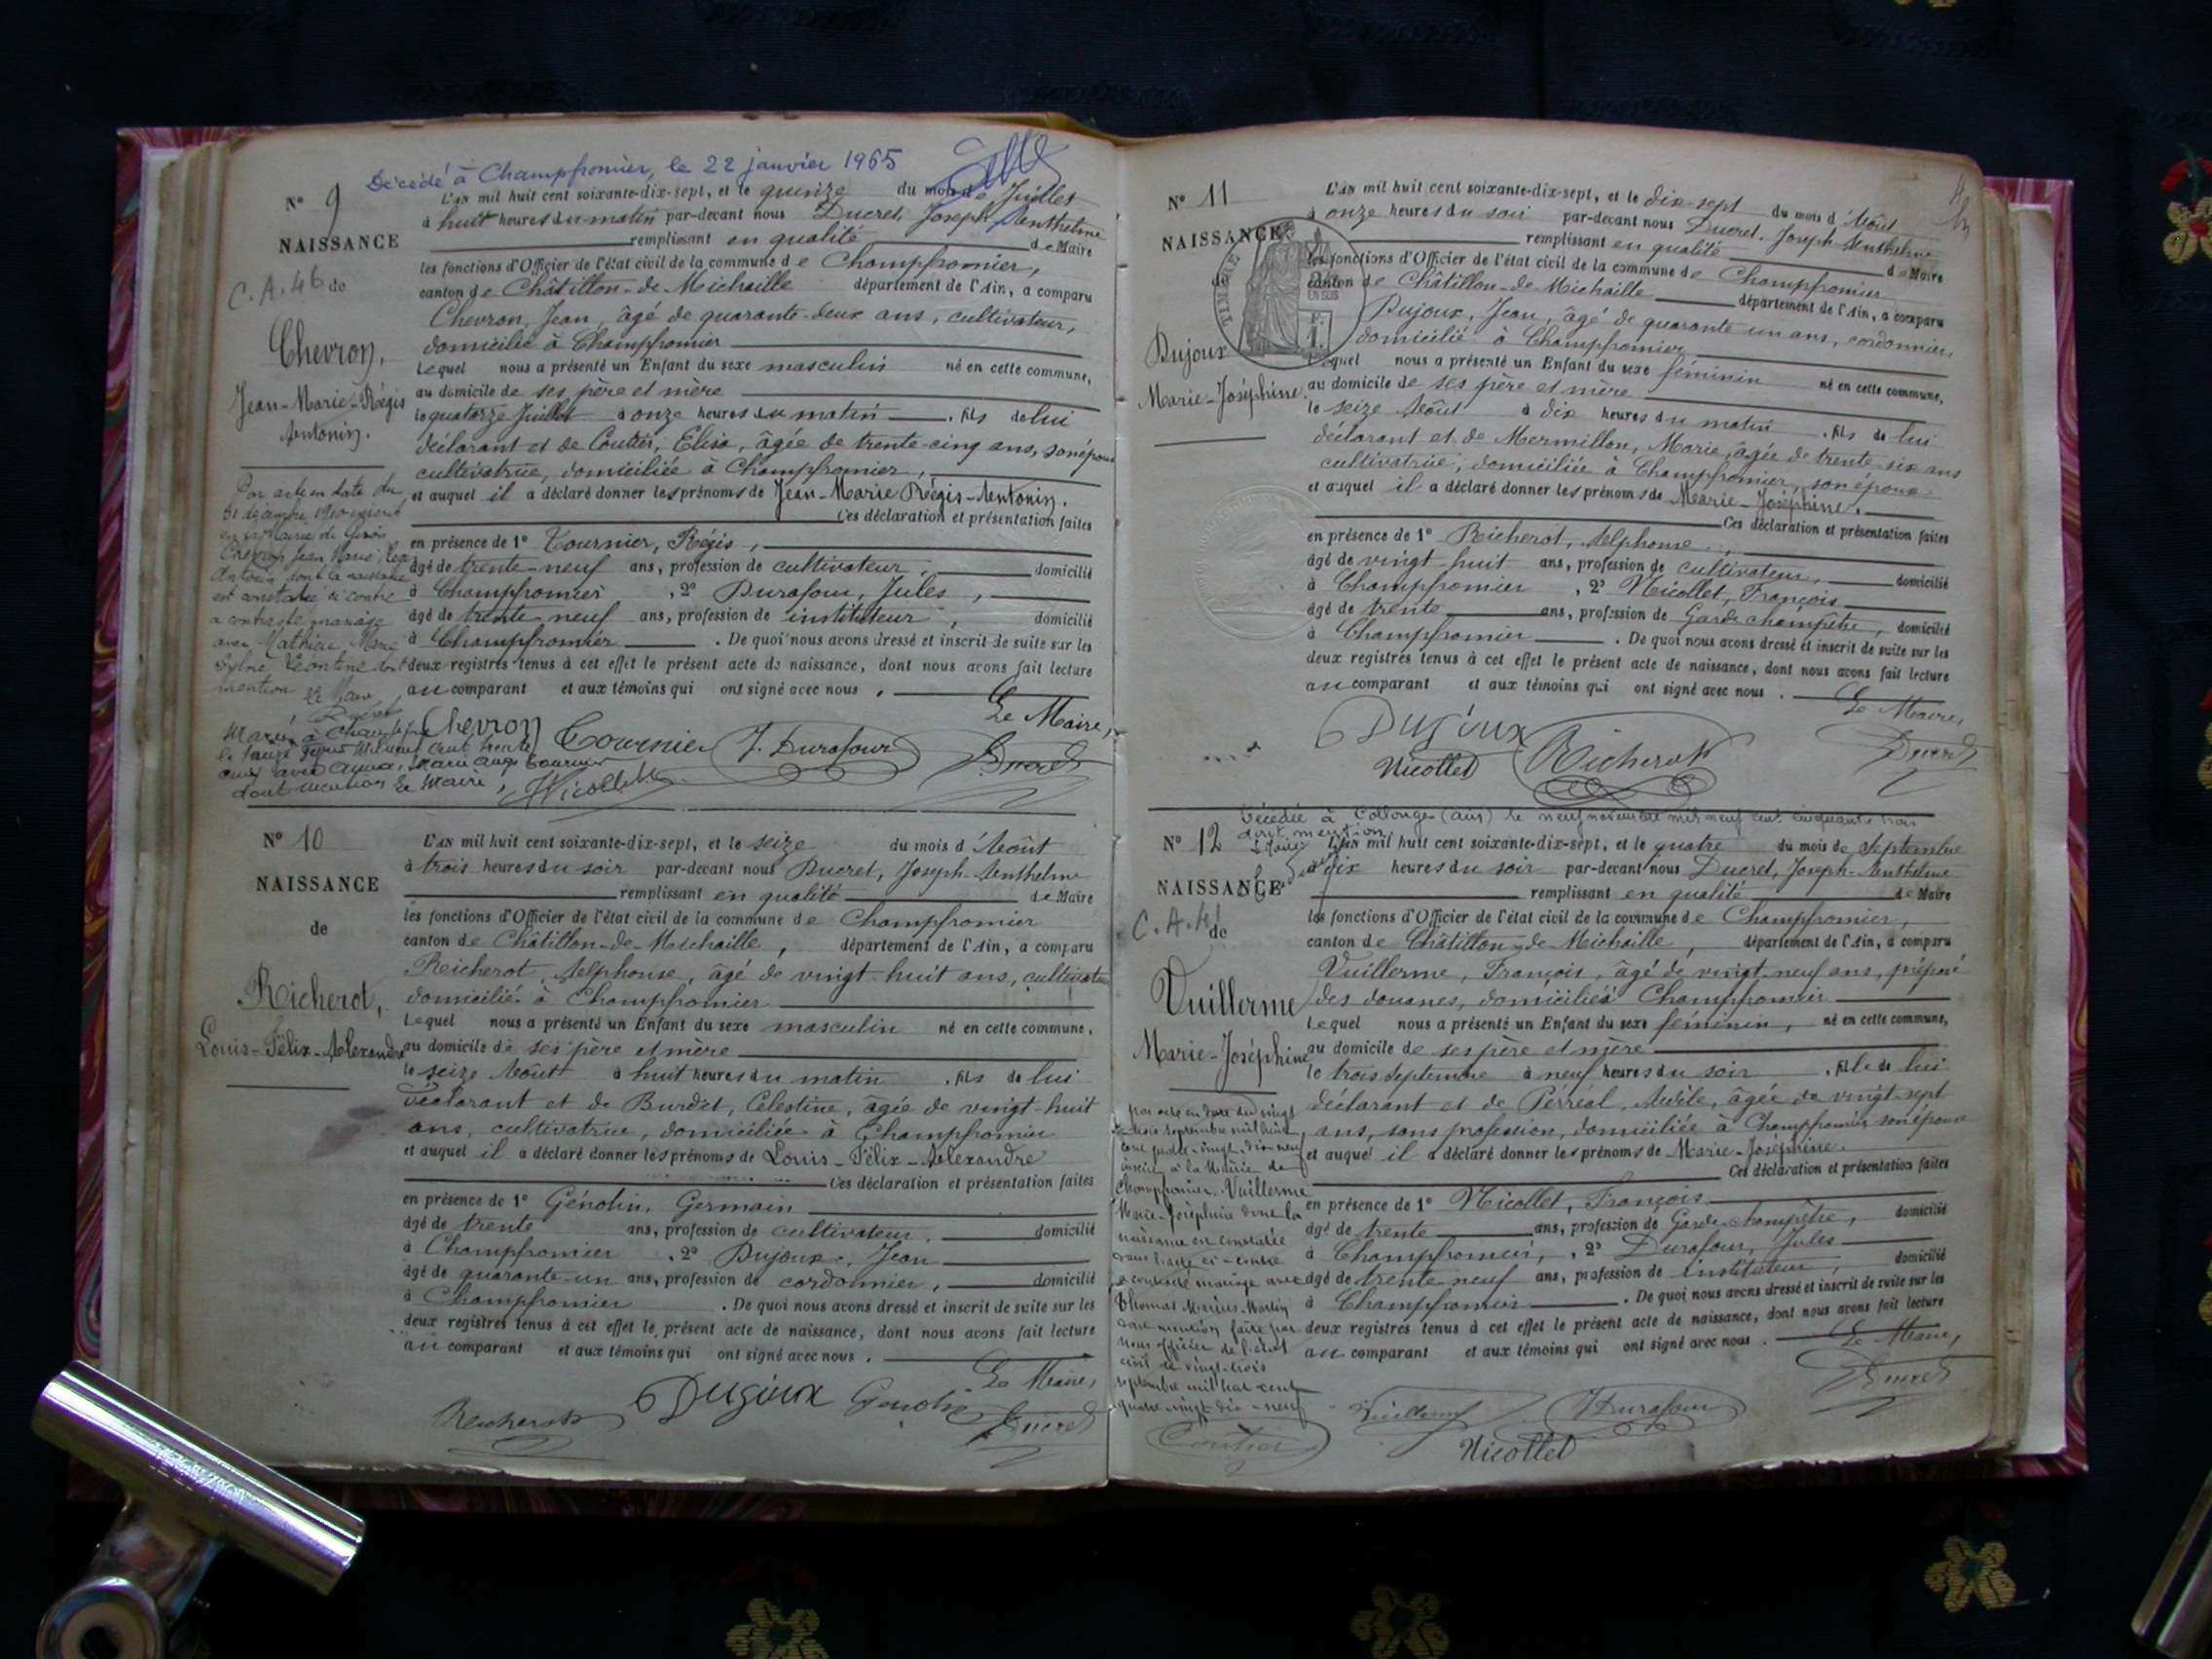 Décédé à Champfromier, le 22 janvier 1965
N° 9
NAISSANCE
C. A. 46 de
Chevron,
Jean-Marie-Régis
Antonin.
L'an mil huit cent soixante-dix-sept, et le quinze du mois de Juillet
à huit heures du matin par-devant nous Ducret, Joseph Anthelme
remplissant en qualité de Maire
les fonctions d'Officier de l'état civil de la commune de Champfromier,
canton de Châtillon-de-Michaille département de l'Ain, a comparu
Chevron, Jean, âgé de quarante-deux ans, cultivateur,
domicilié à Champfromier
Lequel nous a présenté un Enfant du sexe masculin né en cette commune,
au domicile de ses père et mère
le quatorze Juillet à onze heures du matin . fils de lui
déclarant et de Coutier, Elisa, âgée de trente-cinq ans, son épouse
cultivatrice, domiciliée à Champfromier,
et auquel il a déclaré donner les prénoms de Jean-Marie Régis-Antonin.
Ces déclaration et présentation faites
en présence de 1° Tournier, Régis,
âgé de trente-neuf ans, profession de cultivateur, domicilié
à Champfromier , 2° Durafour, Jules,
âgé de trente neuf ans, profession de instituteur, domicilié
à Champfromier . De quoi nous avons dressé et inscrit de suite sur les
deux registres tenus à cet effet le présent acte de naissance, dont nous avons fait lecture
au comparant et aux témoins qui ont signé avec nous .
Le Maire,
Par acte en date du
31 décembre 1910
Chevron Jean Marie Régis
Antonin dont la naissance
est constatée ci contre
a contracté mariage
avec Mathieu Marie
Léontine dont
mention Le Maire
Marié à
avec Marie Tournier
dont mention Le Maire,
Chevron Tournier J. Durafour Ducret
Nicollet
N° 10
NAISSANCE
de
Richerot,
Louis-Félix-Alexandre
L'an mil huit cent soixante-dix-sept, et le seize du mois d'Août
à trois heures du soir par-devant nous Ducret, Joseph-Anthelme
remplissant en qualité de Maire
les fonctions d'Officier de l'état civil de la commune de Champfromier
canton de Châtillon-de-Michaille, département de l'Ain, a comparu
Richerot, Alphonse, âgé de vingt-huit ans, cultivateur
domicilié à Champfromier
Lequel nous a présenté un Enfant du sexe masculin né en cette commune,
au domicile de ses père et mère
le seize Août à huit heures du matin . fils de lui
déclarant et de Burdet, Célestine, âgée de vingt-huit
ans, cultivatrice, domiciliée à Champfromier
et auquel il a déclaré donner les prénoms de Louis-Félix-Alexandre
Ces déclaration et présentation faites
en présence de 1° Génolin, Germain
âgé de trente ans, profession de cultivateur, domicilié
à Champfromier , 2° Dujoux, Jean
âgé de quarante-un ans, profession de cordonnier, domicilié
à Champfromier . De quoi nous avons dressé et inscrit de suite sur les
deux registres tenus à cet effet le présent acte de naissance, dont nous avons fait lecture
au comparant et aux témoins qui ont signé avec nous .
Le Maire,
Richerot Dujoux Genolin Ducret
N° 11
NAISSANCE
de
TIMBRE
Dujoux
Marie-Joséphine.
L'an mil huit cent soixante-dix-sept, et le dix-sept du mois d'Août
à onze heures du soir par-devant nous Ducret, Joseph-Anthelme
remplissant en qualité de Maire
les fonctions d'Officier de l'état civil de la commune de Champfromier
canton de Châtillon-de-Michaille département de l'Ain, a comparu
Dujoux, Jean, âgé de quarante un ans, cordonnier,
domicilié à Champfromier
Lequel nous a présenté un Enfant du sexe féminin né en cette commune,
au domicile de ses père et mère
le seize Août à dix heures du matin . fils de lui
déclarant et de Mermillon, Marie, âgée de trente six ans
cultivatrice, domiciliée à Champfromier, son épouse
et auquel il a déclaré donner les prénoms de Marie-Joséphine.
Ces déclaration et présentation faites
en présence de 1° Richerot, Alphonse,
âgé de vingt-huit ans, profession de cultivateur, domicilié
à Champfromier , 2° Nicollet, François
âgé de trente ans, profession de Garde champêtre, domicilié
à Champfromier . De quoi nous avons dressé et inscrit de suite sur les
deux registres tenus à cet effet le présent acte de naissance, dont nous avons fait lecture
au comparant et aux témoins qui ont signé avec nous .
Le Maire,
Dujoux Richerot Ducret
Nicollet
Décédée à Collonges (ain) le neuf novembre mil neuf cent cinquante trois
dont mention
N° 12
NAISSANCE
C. A. 41 de
Vuillerme
Marie-Joséphine
L'an mil huit cent soixante-dix-sept, et le quatre du mois de Septembre
à dix heures du soir par-devant nous Ducret, Joseph-Anthelme
remplissant en qualité de Maire
les fonctions d'Officier de l'état civil de la commune de Champfromier,
canton de Châtillon-de-Michaille, département de l'Ain, a comparu
Vuillerme, François, âgé de vingt-neuf ans, préposé
des douanes, domicilié à Champfromier
Lequel nous a présenté un Enfant du sexe féminin, né en cette commune,
au domicile de ses père et mère
le trois septembre à neuf heures du soir . fille de lui
déclarant et de Perréal, âgée de vingt-sept
ans, sans profession, domiciliée à Champfromier, son épouse
et auquel il a déclaré donner les prénoms de Marie-Joséphine.
Ces déclaration et présentation faites
en présence de 1° Nicollet, François
âgé de trente ans, profession de Garde-champêtre, domicilié
à Champfromier, , 2° Durafour, Jules
âgé de trente neuf ans, profession de instituteur, domicilié
à Champfromier . De quoi nous avons dressé et inscrit de suite sur les
deux registres tenus à cet effet le présent acte de naissance, dont nous avons fait lecture
au comparant et aux témoins qui ont signé avec nous .
Le Maire,
par acte en date du vingt
trois septembre mil huit
cent quatre-vingt-dix-neuf
inscrit à la Mairie de
Champfromier, Vuillerme
Marie-Joséphine dont la
naissance est constatée
dans l'acte ci-contre
a contracté mariage avec
Thomas Marius-Martin
dont mention faite par
nous officier de l'état
civil le vingt-trois
septembre mil huit cent
quatre-vingt-dix-neuf
Coutier
Vuillerme J Durafour Ducret
Nicollet